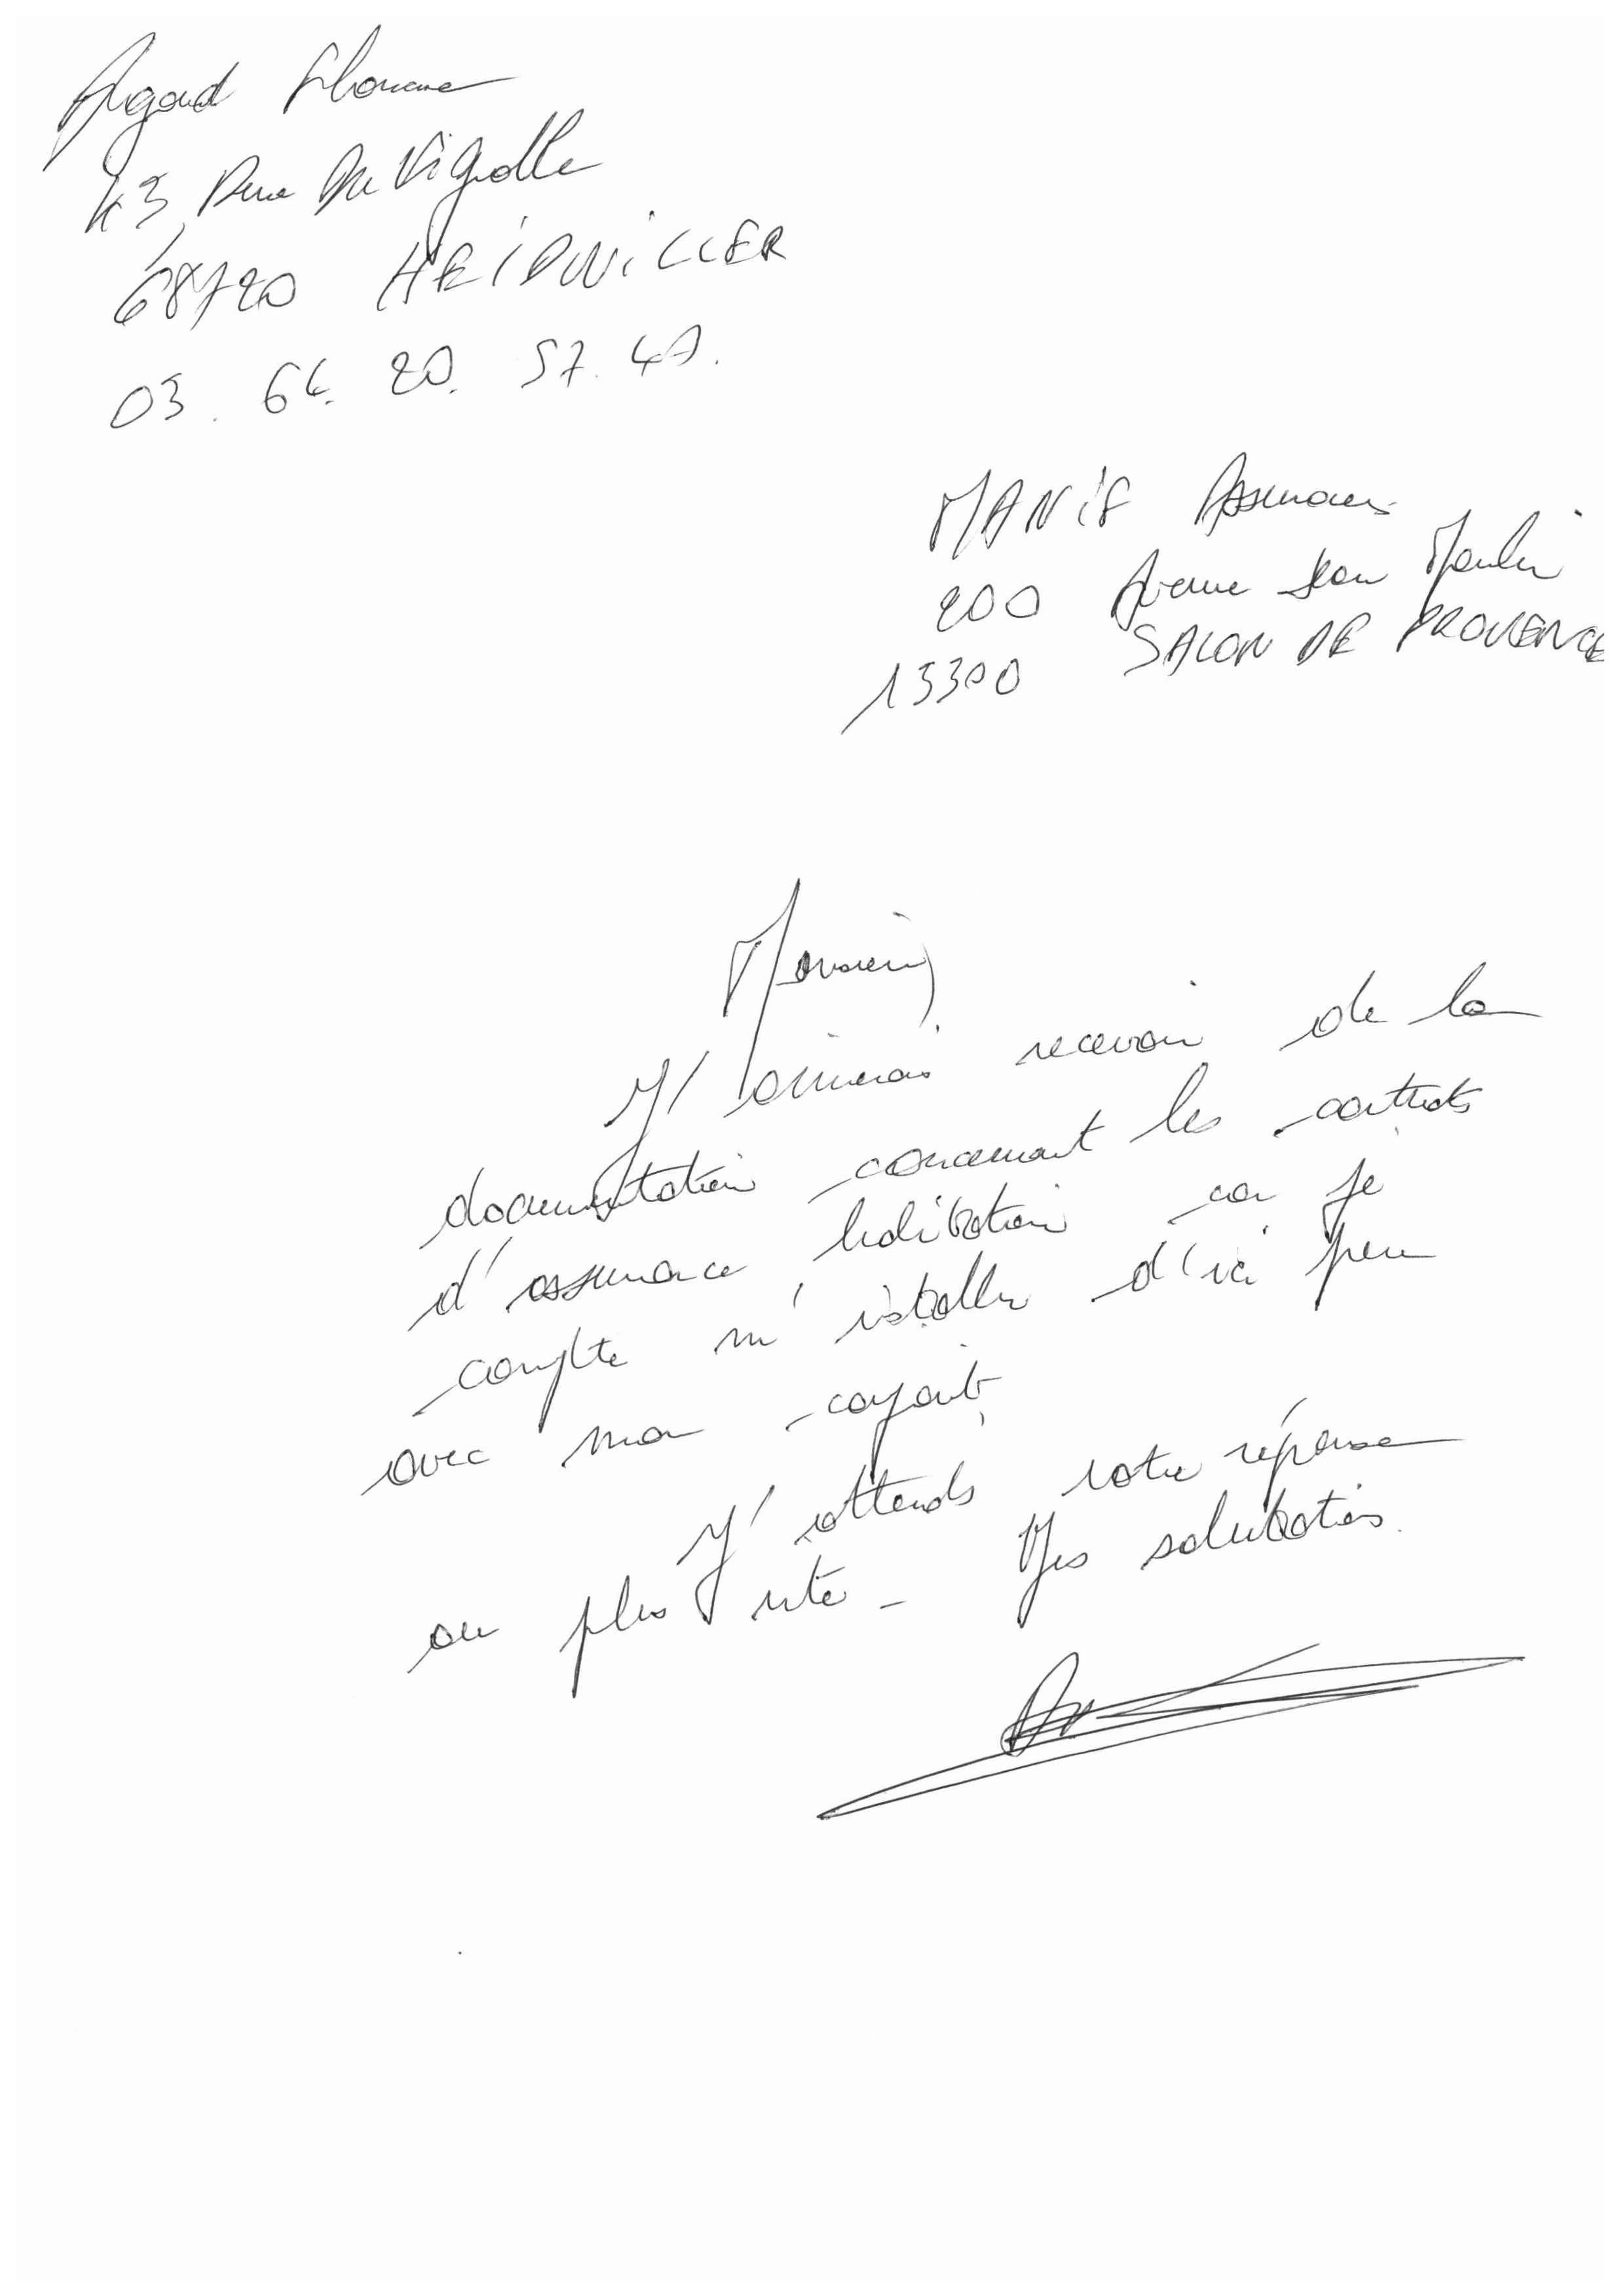 Agard Floriane
43 Rue Du Vignolle
68720 HEIDWILLER
03. 64. 20. 57. 47.
MANIF Assurances
200 Avenue Jean Moulin
13300 SALON DE PROVENCE
Monsieur,
J'aimerais recevoir de la
documentation concernant les contrats
d'assurance habitation car je
compte m'installer d'ici peu
avec mon conjoint.
J'attends votre réponse
au plus vite - Mes salutations.